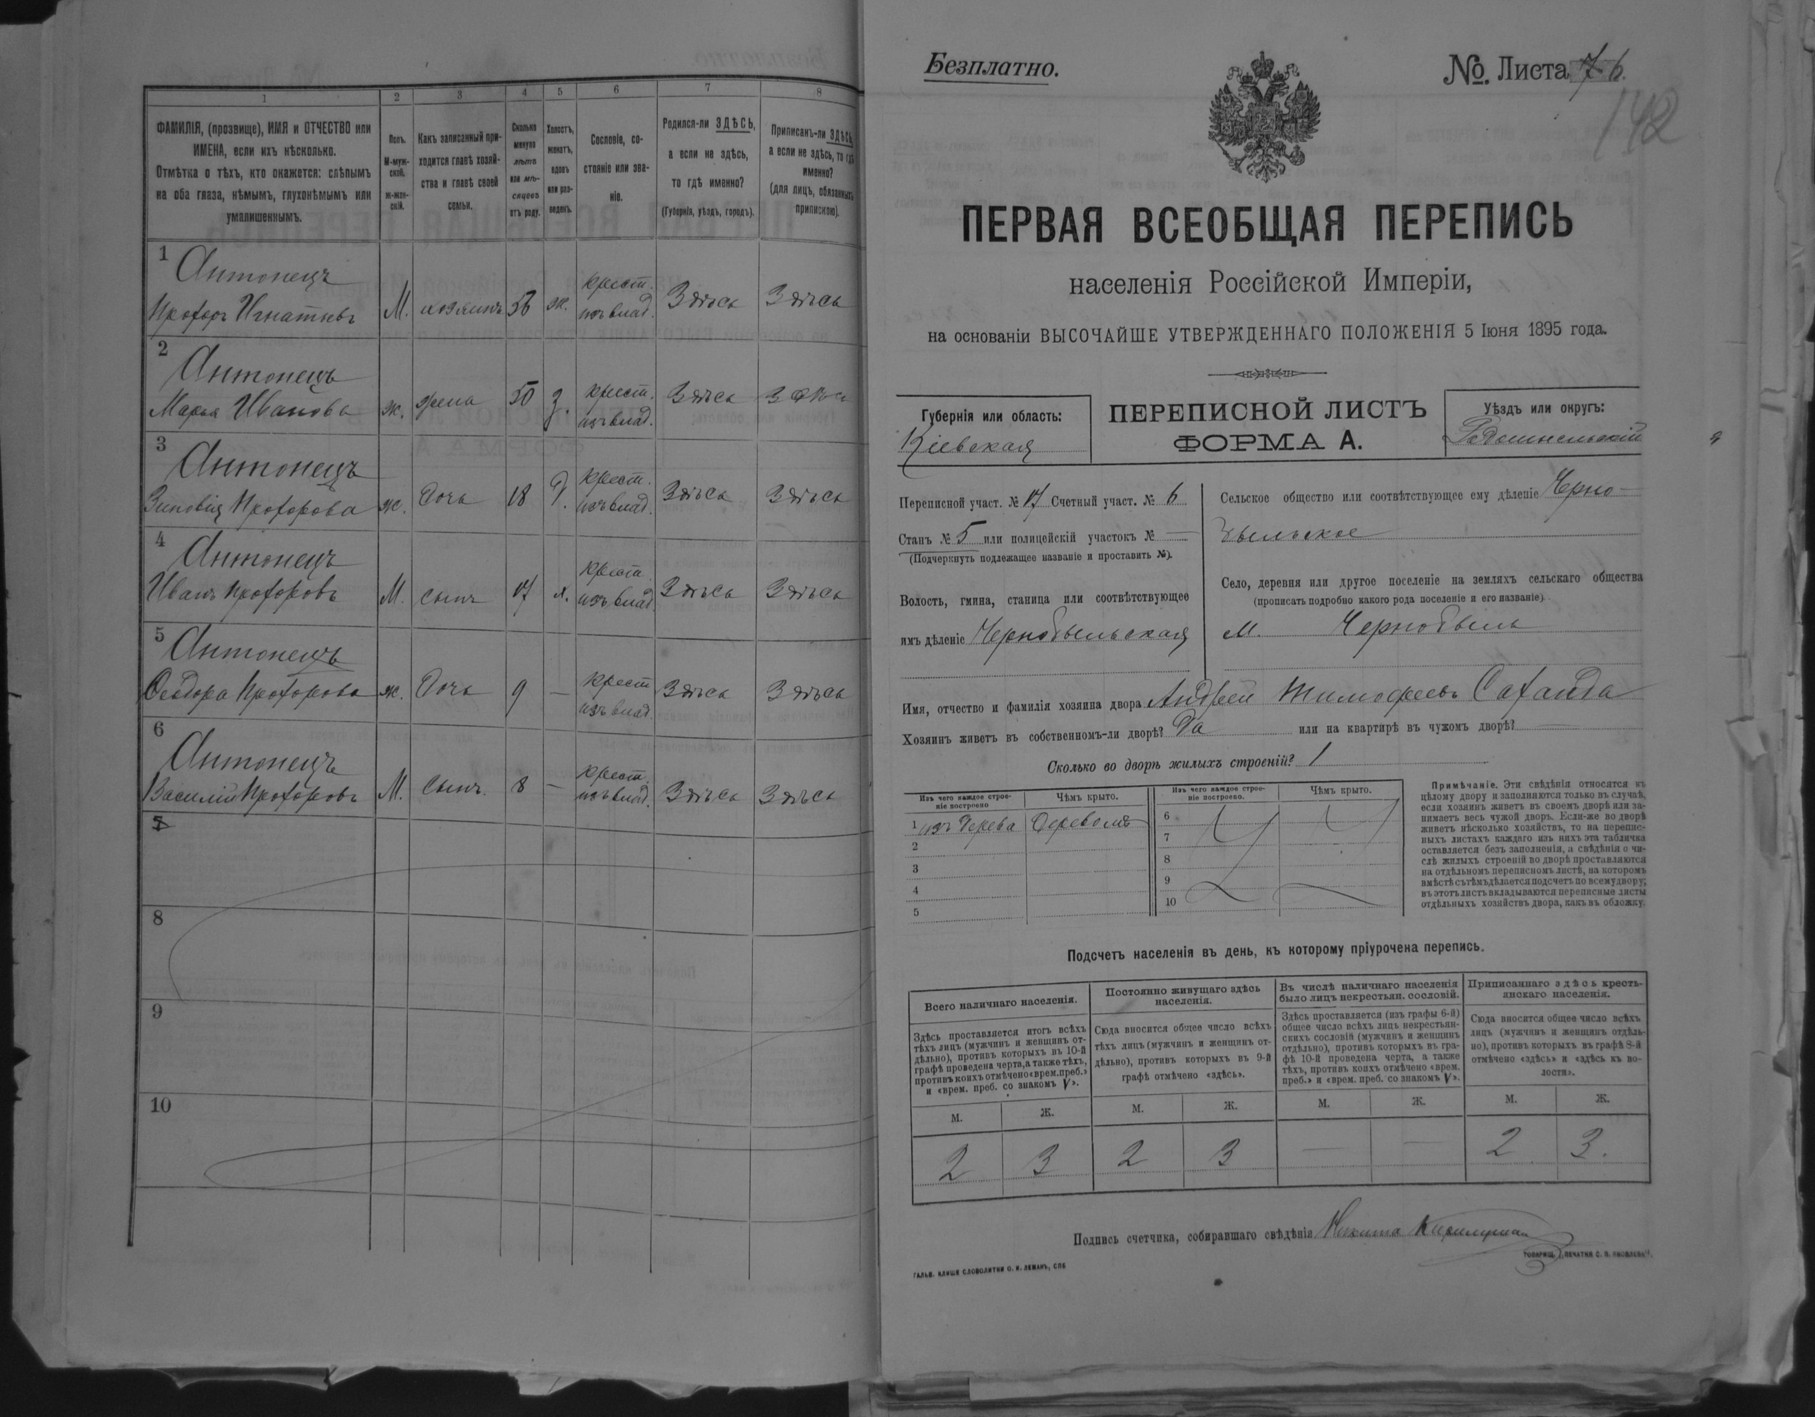 1 2 3 4 5 6 7 8
ФАМИЛІЯ, (прозвище), ИМЯ и ОТЧЕСТВО или
ИМЕНА, если ихъ нѣсколько.
Отмѣтка о тѣхъ, кто окажется: слѣпымъ
на оба глаза, нѣмымъ, глухонѣмымъ или
умалишеннымъ.
Полъ.
М-муж-
ской.
ж-жен-
скій.
Какъ записанный при-
ходится главѣ хозяй-
ства и главѣ своей
семьи.
Сколько
минуло
лѣтъ
или мѣ-
сяцевъ
отъ роду.
Холостъ,
женатъ,
вдовъ
или раз-
веденъ.
Сословіе, со-
стояніе или зва-
ніе.
Родился-ли ЗДѢСЬ,
а если не здѣсь,
то гдѣ именно?
(Губернія, уѣздъ, городъ).
Приписанъ-ли ЗДѢСЬ,
а если не здѣсь, то гдѣ
именно?
(для лицъ, обязанныхъ
припискою).
1 Антонецъ
Прохоръ Игнатьевъ М. хозяинъ 56 ж. крест. изъ влад. Здѣсь Здѣсь
2 Антонецъ
Марья Иванова ж. жена 50 з. крест. изъ влад. Здѣсь Здѣсь
3 Антонецъ
Зиновія Прохорова ж. дочь 18 д. крест. изъ влад. Здѣсь Здѣсь
4 Антонецъ
Иванъ Прохоровъ М. сынъ 17 х. крест. изъ влад. Здѣсь Здѣсь
5 Антонецъ
Ѳеодора Прохорова ж. дочь 9 — крест. изъ влад. Здѣсь Здѣсь
6 Антонецъ
Василій Прохоровъ М. сынъ. 8 — крест. изъ влад. Здѣсь Здѣсь
8
9
10
Безплатно.
№. Листа 6.
142
ПЕРВАЯ ВСЕОБЩАЯ ПЕРЕПИСЬ
населенія Россійской Имперіи,
на основаніи ВЫСОЧАЙШЕ УТВЕРЖДЕННАГО ПОЛОЖЕНІЯ 5 Іюня 1895 года.
Губернія или область:
Кіевская
ПЕРЕПИСНОЙ ЛИСТЪ
ФОРМА А.
Уѣздъ или округъ:
Радомысльскій
Переписной участ. № 17 Счетный участ. № 6
Станъ № 5 или полицейскій участокъ № —
(Подчеркнуть подлежащее названіе и проставить №).
Волость, гмина, станица или соотвѣтствующее
имъ дѣленіе Чернобыльская
Сельское общество или соотвѣтствующее ему дѣленіе Черно-
быльское
Село, деревня или другое поселеніе на земляхъ сельскаго общества
(прописать подробно какого рода поселеніе и его названіе)
м. Чернобыль
Имя, отчество и фамилія хозяина двора Андрей Тимофеевъ Саханда
Хозяинъ живетъ въ собственномъ-ли дворѣ? Да или на квартирѣ въ чужомъ дворѣ? —
Сколько во дворѣ жилыхъ строеній? 1
Изъ чего каждое строе-
ніе построено
Чѣмъ крыто.
Изъ чего каждое строе-
ніе построено.
Чѣмъ крыто.
1 изъ дерева Деревомъ
2
3
4
5
6
7
8
9
10
Примѣчаніе. Эти свѣдѣнія относятся къ
цѣлому двору и заполняются только въ случаѣ,
если хозяинъ живетъ въ своемъ дворѣ или за-
нимаетъ весь чужой дворъ. Если-же во дворѣ
живетъ нѣсколько хозяйствъ, то на перепис-
ныхъ листахъ каждаго изъ нихъ эта табличка
оставляется безъ заполненія, а свѣдѣнія о чи-
слѣ жилыхъ строеній во дворѣ проставляются
на отдѣльномъ переписномъ листѣ, на которомъ
вмѣстѣ съ тѣмъ дѣлается подсчетъ по всему двору;
въ этотъ листъ вкладываются переписные листы
отдѣльныхъ хозяйствъ двора, какъ въ обложку.
Подсчетъ населенія въ день, къ которому пріурочена перепись.
Всего наличнаго населенія.
Здѣсь проставляется итогъ всѣхъ
тѣхъ лицъ (мужчинъ и женщинъ от-
дѣльно), противъ которыхъ въ 10-й
графѣ проведена черта, а также тѣхъ,
противъ коихъ отмѣчено «врем. преб.»
и «врем. преб. со знакомъ V».
Постоянно живущаго здѣсь
населенія.
Сюда вносится общее число всѣхъ
тѣхъ лицъ (мужчинъ и женщинъ от-
дѣльно), противъ которыхъ въ 9-й
графѣ отмѣчено «здѣсь».
Въ числѣ наличнаго населенія
было лицъ некрестьян. сословій.
Здѣсь проставляется (изъ графы 6-й)
общее число всѣхъ лицъ некрестьян-
скихъ сословій (мужчинъ и женщинъ
отдѣльно), противъ которыхъ въ гра-
фѣ 10-й проведена черта, а также
тѣхъ, противъ коихъ отмѣчено «врем.
преб.» и «врем. преб. со знакомъ V».
Приписаннаго здѣсь кресть-
янскаго населенія.
Сюда вносится общее число всѣхъ
лицъ (мужчинъ и женщинъ отдѣль-
но), противъ которыхъ въ графѣ 8-й
отмѣчено «здѣсь» и «здѣсь къ во-
лости».
М. Ж. М. Ж. М. Ж. М. Ж.
2 3 2 3 — — 2 3.
Подпись счетчика, собиравшаго свѣдѣнія Никита
ГАЛЬВ. КЛИШЕ СЛОВОЛИТНИ О. И. ЛЕМАНЪ, СПБ
ТОВАРИЩ. ПЕЧАТНИ С. П. ЯКОВЛЕВА.